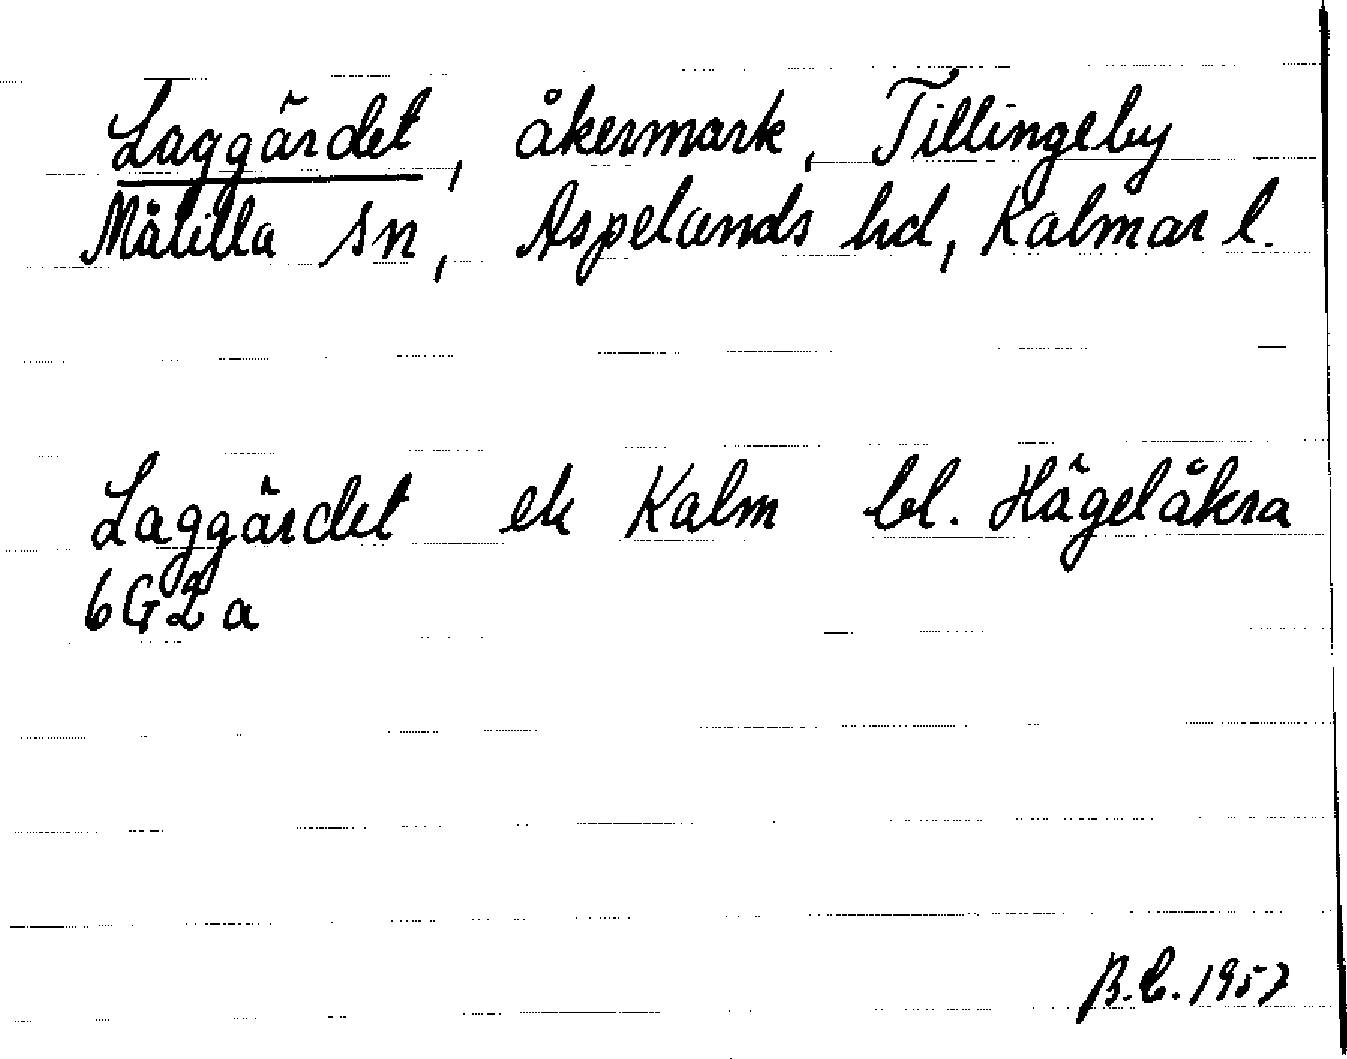 Laggärdet, åkermark, Tillingeby
Målilla sn, Aspelands hd, Kalmar l.
Laggärdet ek Kalm bl. Hägelåkra
6G2a
B.C. 1957